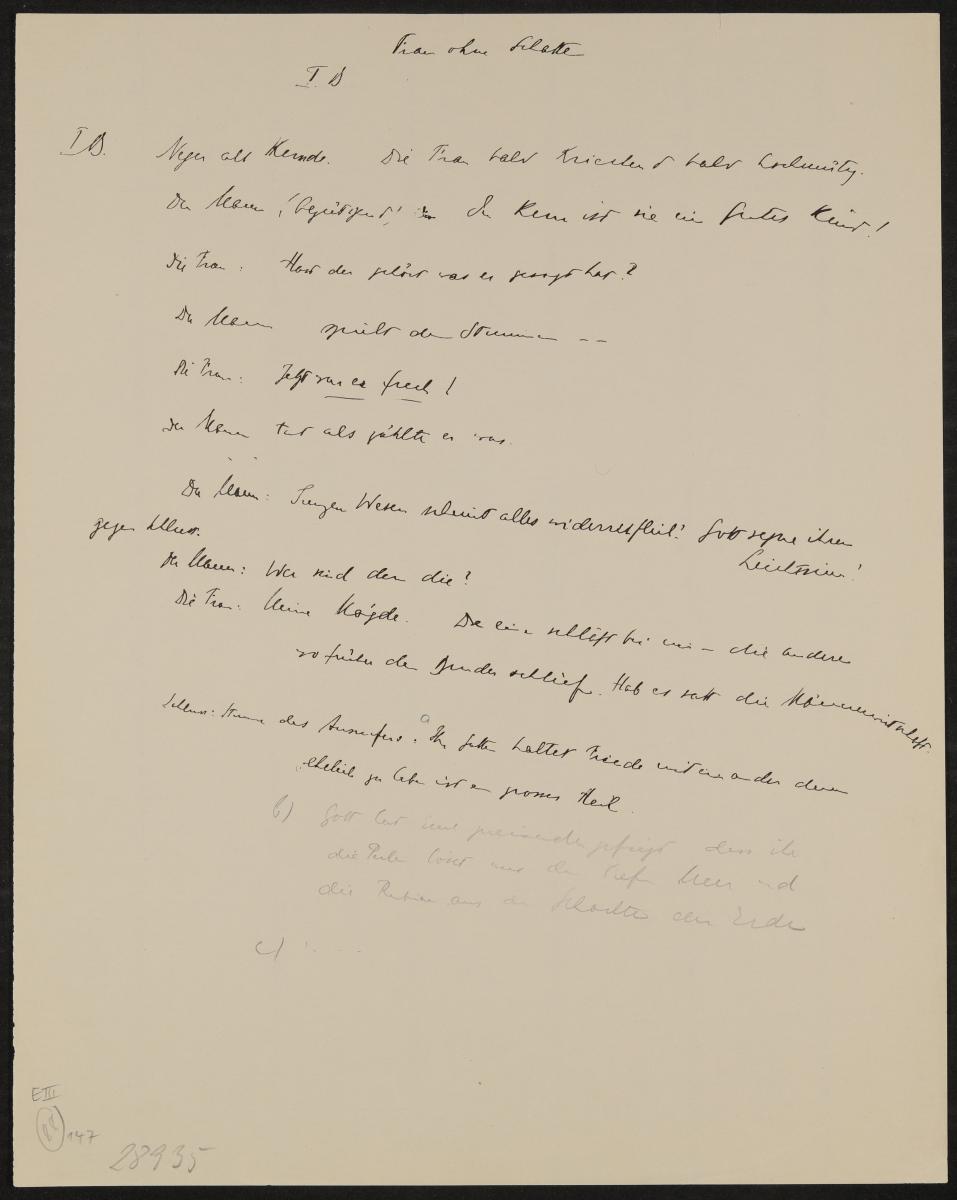 Frau ohne Schatten
I B
I B. Neger als Kunde. Die Frau bald kriechend bald hochmütig.
Der Mann (begütigend) Im Kern ist sie ein gutes Kind!
Die Frau: Hast du gehört was er gesagt hat?
Der Mann spielt den Stummen --
Die Frau: Jetzt war er frech!
Der Mann tut als zählte er was.
Der Mann: Jungen Wesen scheint alles widerruflich! Gott segne ihren
Leichtsinn!
gegen Schluss.
Der Mann: Wer sind denn die?
Die Frau: Meine Mägde. Die eine schläft bei mir – die andere
wo früher der Bruder schlief. Hab es satt die Männerwirtschaft.
Schluss: Stimme des Ausrufers: a Ihr Gatten haltet Friede mit einander denn
ehelich zu leben ist ein grosses Heil.
b) Gott hat gefügt dass ihr
die Perlen aus dem tiefen Meer und
die Rubine aus den Schachten der Erde
c) : - - -
E III
147
28935